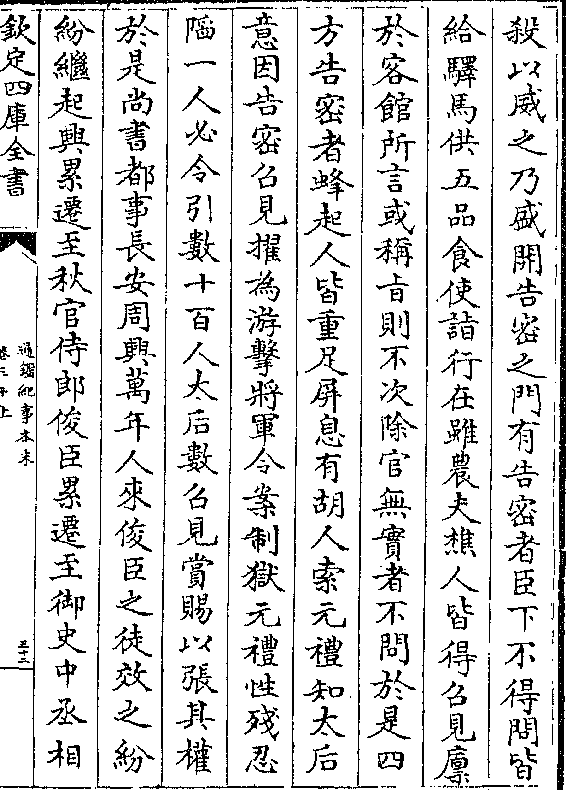 殺以威之乃盛開告密之門有告密者臣下不得問皆
給驛馬供五品食使詣行在雖農夫樵人皆得召見廩
於客館所言或稱旨則不次除官無實者不問於是四
方告密者蜂起人皆重足屏息有胡人索元禮知太后
意因告密召見擢為游擊將軍令案制獄元禮性殘忍
陷一人必令引數十百人太后數召見賞賜以張其權
於是尚書都事長安周興萬年人來俊臣之徒效之紛
紛繼起興累遷至秋官侍郎俊臣累遷至御史中丞相
欽定四庫全書
通鑑紀事本末